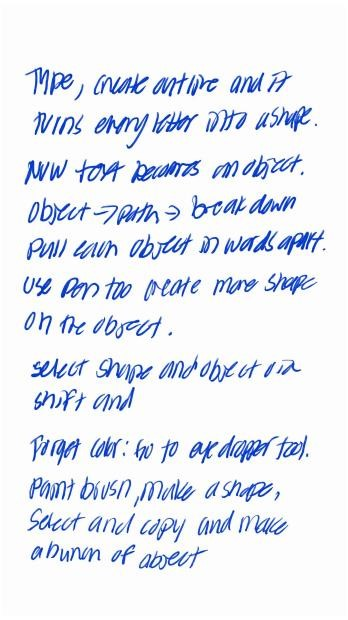 Type, create outline and it
turns every letter into a shape.
Now text becomes an object.
Object → path → break down
pull each object in words apart.
Use pen too create more shape
on the object.
select shape and object via
shift and
Forget color: Go to eye dropper tool.
Paint brush, make a shape,
Select and copy and make
a bunch of object